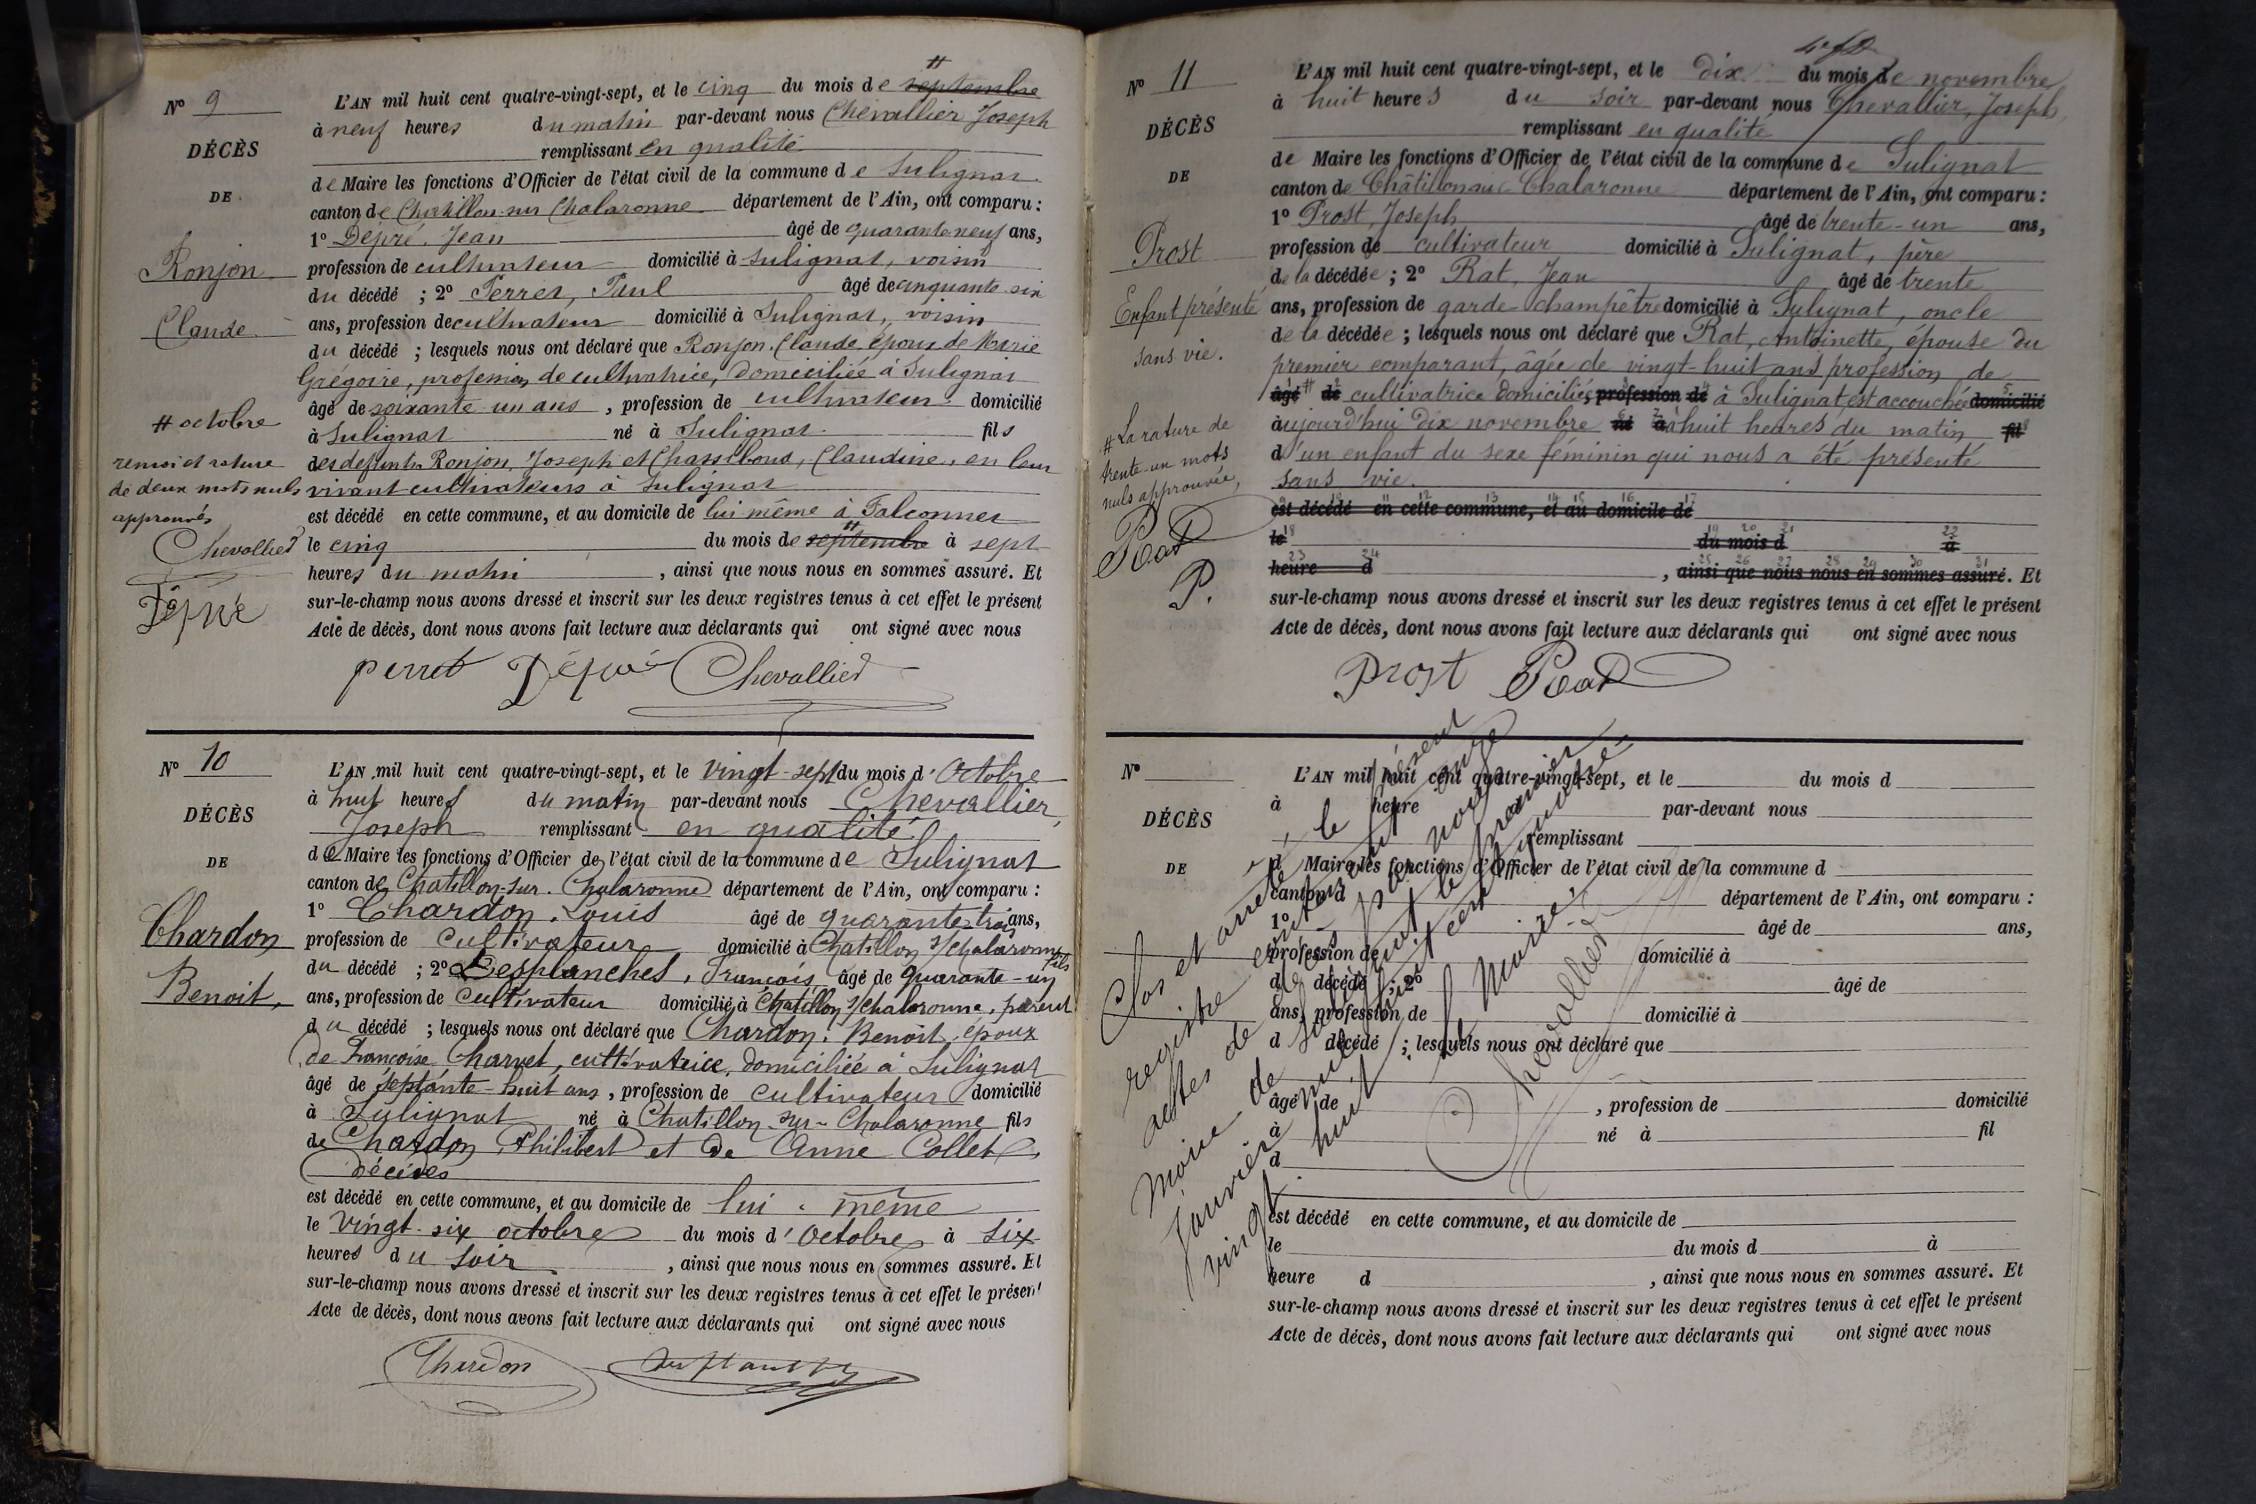 Nº 9
DÉCÈS
DE
Ronjon
Claude
# octobre
renvoi et rature
de deux mots nuls
approuvés
Chevallier
Dépré
#
L'AN mil huit cent quatre-vingt-sept, et le cinq du mois de septembre
à neuf heures du matin par-devant nous Chevallier Joseph
remplissant en qualité
de Maire les fonctions d'Officier de l'état civil de la commune de Sulignat
canton de Chatillon-sur Chalaronne département de l'Ain, ont comparu :
1º Dépré, Jean âgé de quarante neuf ans,
profession de cultivateur domicilié à Sulignat, voisin
du décédé ; 2º Perret, Paul âgé de cinquante six
ans, profession de cultivateur domicilié à Sulignat, voisin
du décédé ; lesquels nous ont déclaré que Ronjon Claude époux de Marie
Grégoire, profession de cultivatrice, domiciliée à Sulignat
âgé de soixante un ans , profession de cultivateur domicilié
à Sulignat né à Sulignat fils
des defunts Ronjon, Joseph et Claudine, en leur
vivant cultivateurs à Sulignat
est décédé en cette commune, et au domicile de lui même à Falconnet
#
le cinq du mois de septembre à sept
heures du matin , ainsi que nous nous en sommes assuré. Et
sur-le-champ nous avons dressé et inscrit sur les deux registres tenus à cet effet le présent
Acte de décès, dont nous avons fait lecture aux déclarants qui ont signé avec nous
perret Dépré Chevallier
Nº 10
DÉCÈS
DE
Chardon
Benoit,
L'AN mil huit cent quatre-vingt-sept, et le vingt-sept du mois d'Octobre
à huit heures du matin par-devant nous Chevallier,
Joseph remplissant en qualité
de Maire les fonctions d'Officier de l'état civil de la commune de Sulignat
canton de Chatillon-sur-Chalaronne département de l'Ain, ont comparu :
1º Chardon, Louis âgé de quarante trois ans,
profession de cultivateur domicilié à Chatillon s/Chalaronne fils
du décédé ; 2º Desplanches, François, âgé de quarante-un
ans, profession de cultivateur domicilié à Chatillon s/Chalaronne, parent
du décédé ; lesquels nous ont déclaré que Chardon, Benoit, époux
de Françoise Charvet, cultivatrice, domiciliée à Sulignat
âgé de septante-huit ans , profession de cultivateur domicilié
à Sulignat né à Chatillon-sur-Chalaronne fils
de Chardon Philibert et de Anne Collet,
décédés
est décédé en cette commune, et au domicile de lui-même
le vingt-six octobre du mois d'Octobre à six
heures du soir , ainsi que nous nous en sommes assuré. Et
sur-le-champ nous avons dressé et inscrit sur les deux registres tenus à cet effet le présent
Acte de décès, dont nous avons fait lecture aux déclarants qui ont signé avec nous
Chardon
Nº 11
DÉCÈS
DE
Prost
Enfant présenté
sans vie.
# La rature de
trente-un mots
nuls approuvée,
Rat
P.
L'AN mil huit cent quatre-vingt-sept, et le dix du mois de novembre
à huit heures du soir par-devant nous Chevallier, Joseph,
remplissant en qualité
de Maire les fonctions d'Officier de l'état civil de la commune de Sulignat
canton de Châtillon sur Chalaronne département de l'Ain, ont comparu :
1º Prost, Joseph âgé de trente-un ans,
profession de cultivateur domicilié à Sulignat, père
de la décédée ; 2º Rat, Jean âgé de trente
ans, profession de garde-champêtre domicilié à Sulignat, oncle
de la décédée ; lesquels nous ont déclaré que Rat, Antoinette, épouse du
premier comparant, âgée de vingt-huit ans profession de
âgé # de cultivatrice domiciliée profession de à Sulignat est accouchée domicilié
aujourd'hui dix novembre né à à huit heures du matin fil
d'un enfant du sexe féminin qui nous a été présenté
sans vie.
est décédé en cette commune, et au domicile de
le du mois d à
heure d , ainsi que nous nous en sommes assuré. Et
sur-le-champ nous avons dressé et inscrit sur les deux registres tenus à cet effet le présent
Acte de décès, dont nous avons fait lecture aux déclarants qui ont signé avec nous
Prost Rat
Nº
DÉCÈS
DE
L'AN mil huit cent quatre-vingt-sept, et le du mois d
à heure par-devant nous
remplissant
d Maire les fonctions d'Officier de l'état civil de la commune d
canton d département de l'Ain, ont comparu :
1º âgé de ans,
profession de domicilié à
d décédé ; 2º âgé de
ans, profession de domicilié à
d décédé ; lesquels nous ont déclaré que
âgé de , profession de domicilié
à né à fil
d
est décédé en cette commune, et au domicile de
le du mois d à
heure d , ainsi que nous nous en sommes assuré. Et
sur-le-champ nous avons dressé et inscrit sur les deux registres tenus à cet effet le présent
Acte de décès, dont nous avons fait lecture aux déclarants qui ont signé avec nous
Clos et arrêté, le présent
registre contenant onze
actes de décès par nous
Maire de Sulignat le premier
Janvier mil huit cent quatre-
vingt huit
Le Maire
Chevallier